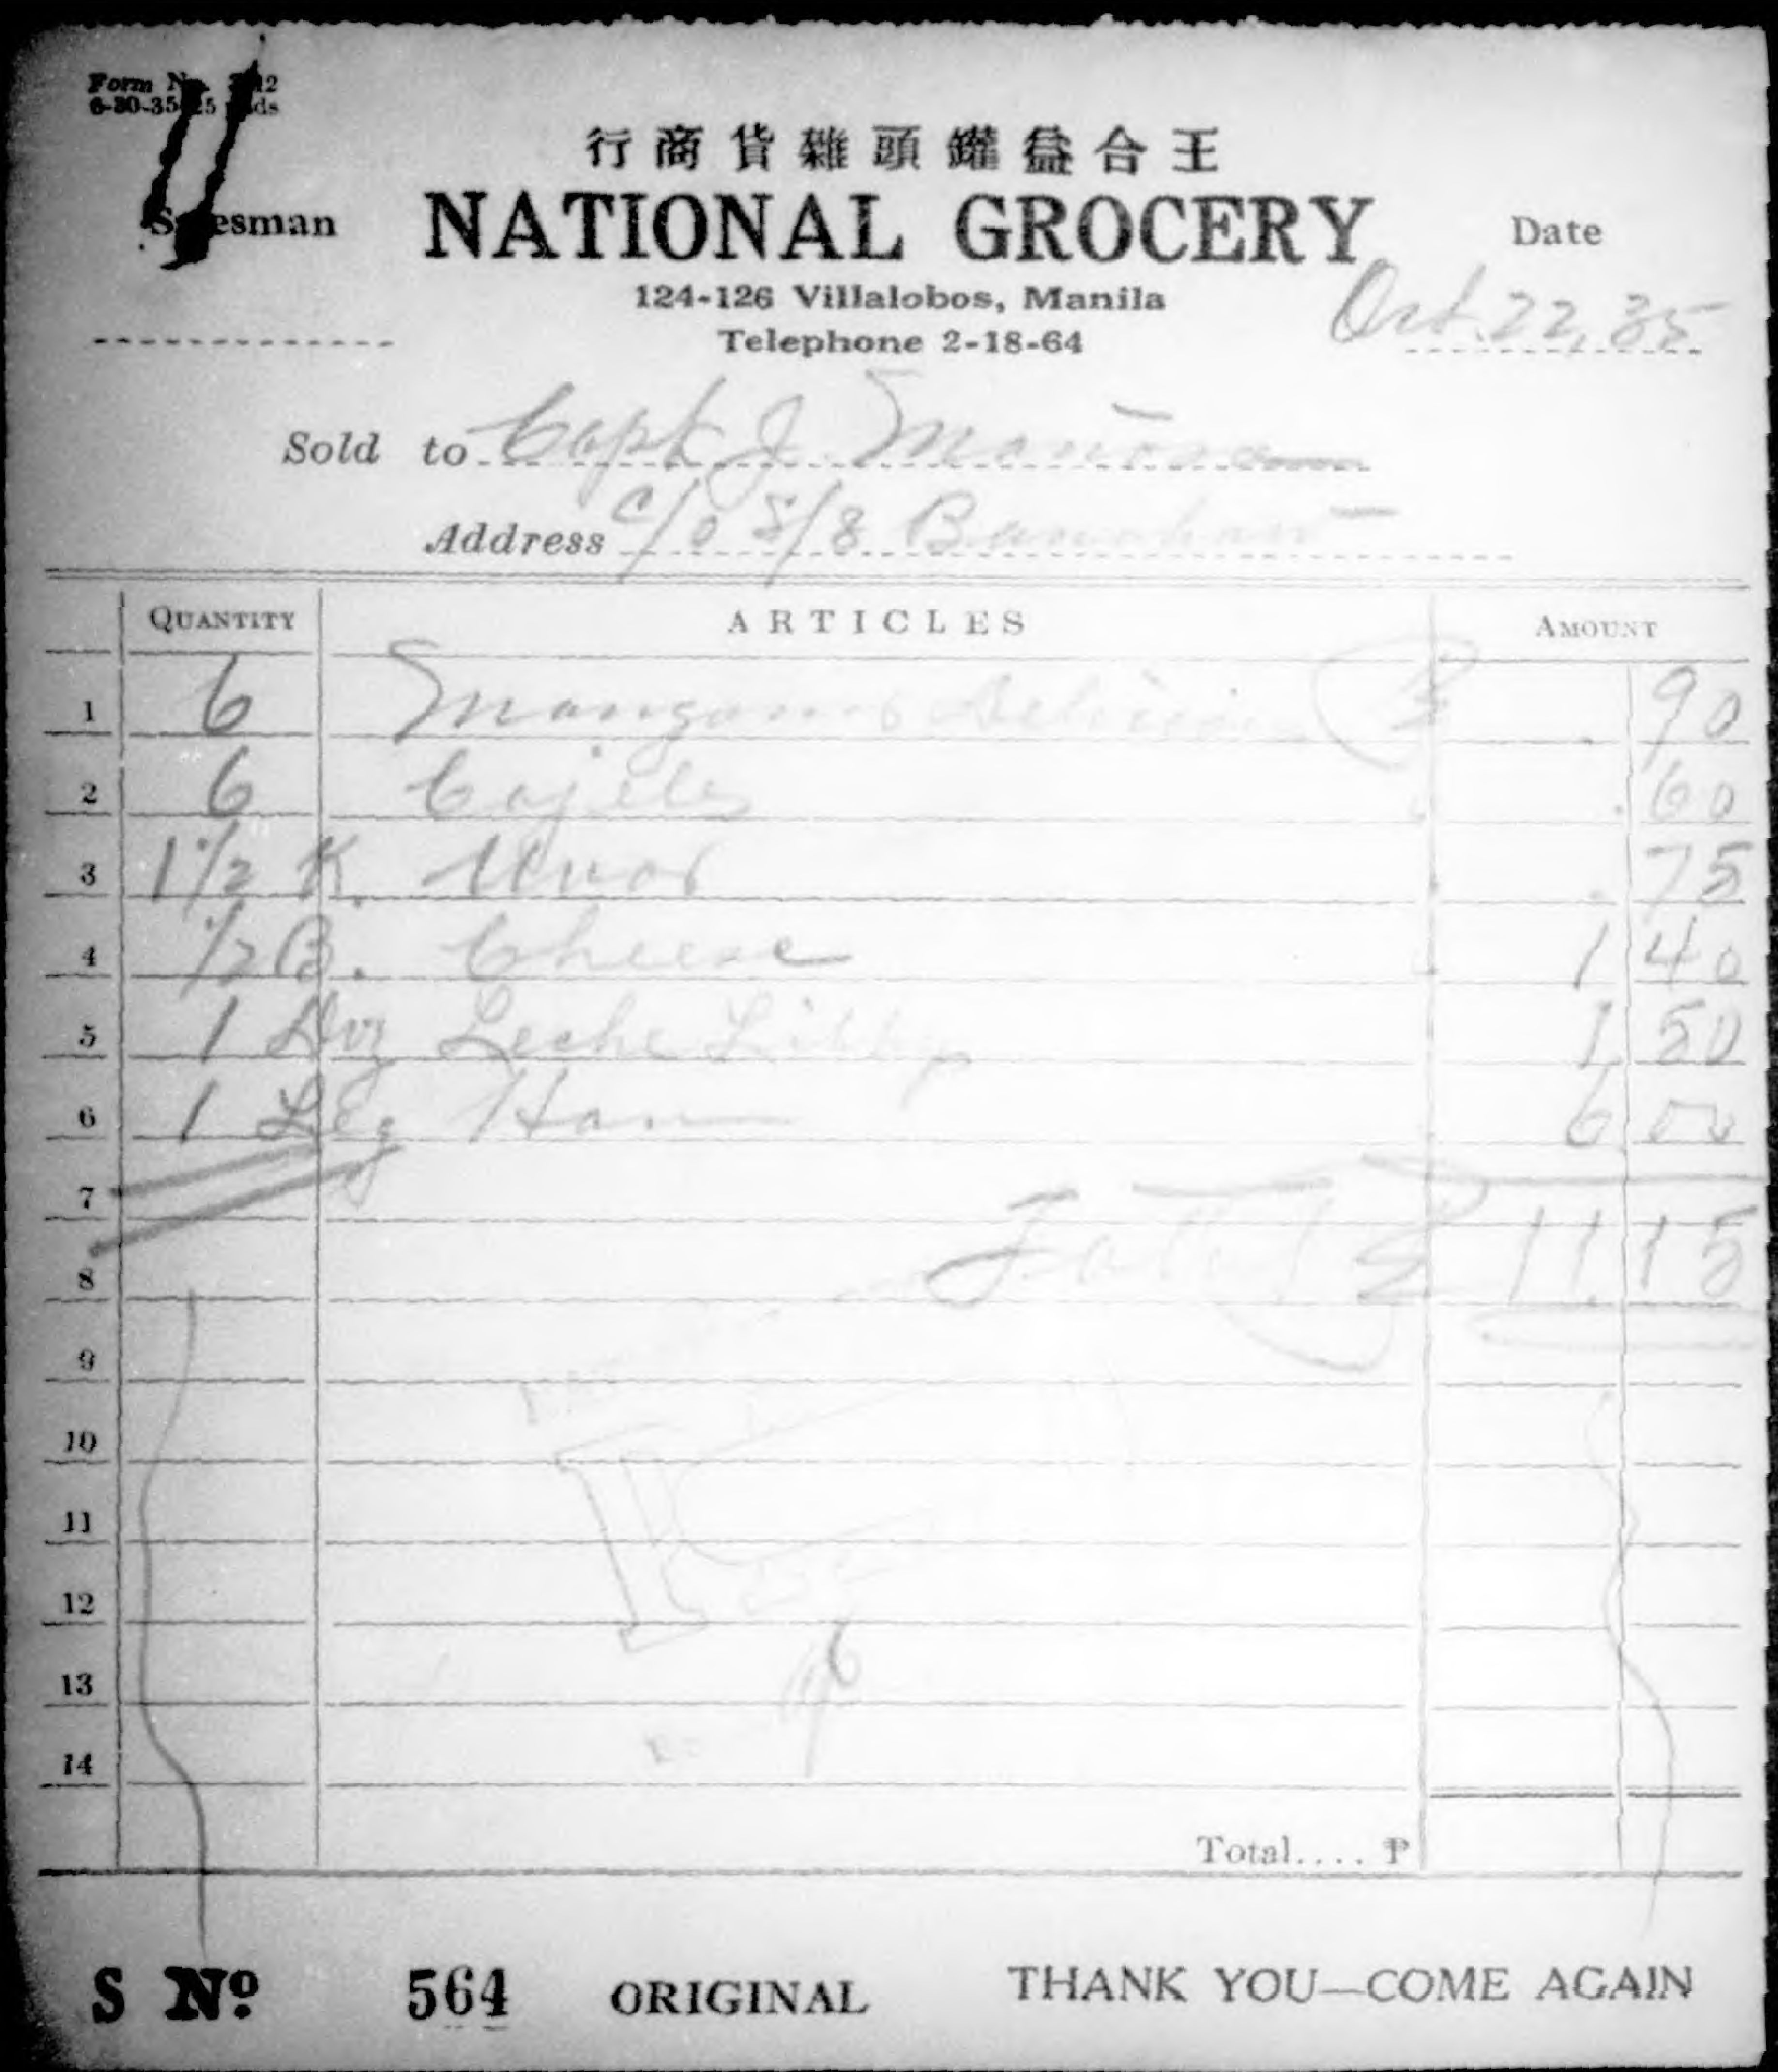 Form No. 12
6-30-35 25 ds
行商貨雜頭罐益合王
Salesman
NATIONAL GROCERY
Date
124-126 Villalobos, Manila
Telephone 2-18-64
Oct. 22, 35
Sold to Capt J.
Address c/o S/S
QUANTITY ARTICLES AMOUNT
1 6 ₱ .90
2 6 Cajeles .60
3 1 1/2 K. Uvas .75
4 1/2 B. Cheese 1 40
5 1 Doz Leche Libby 1 50
6 1 Leg Ham 6 00
7
Total ₱ 11.15
8
9
10
11
12
13
14
Total.... ₱
S No 564 ORIGINAL THANK YOU—COME AGAIN